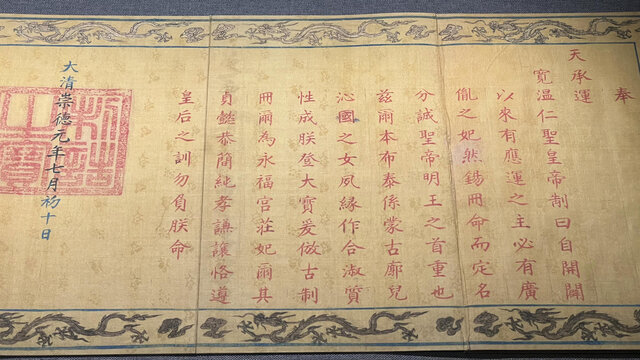 奉
天承運
寬溫仁聖皇帝制曰自開闢
以來有應運之主必有廣
胤之妃然錫冊命而定名
分誠聖帝明王之首重也
茲爾本布泰係蒙古廓兒
沁國之女夙緣作合淑質
性成朕登大寶爰倣古制
冊爾為永福宮莊妃爾其
貞懿恭簡純孝謙讓恪遵
皇后之訓勿負朕命
大清崇德元年七月初十日